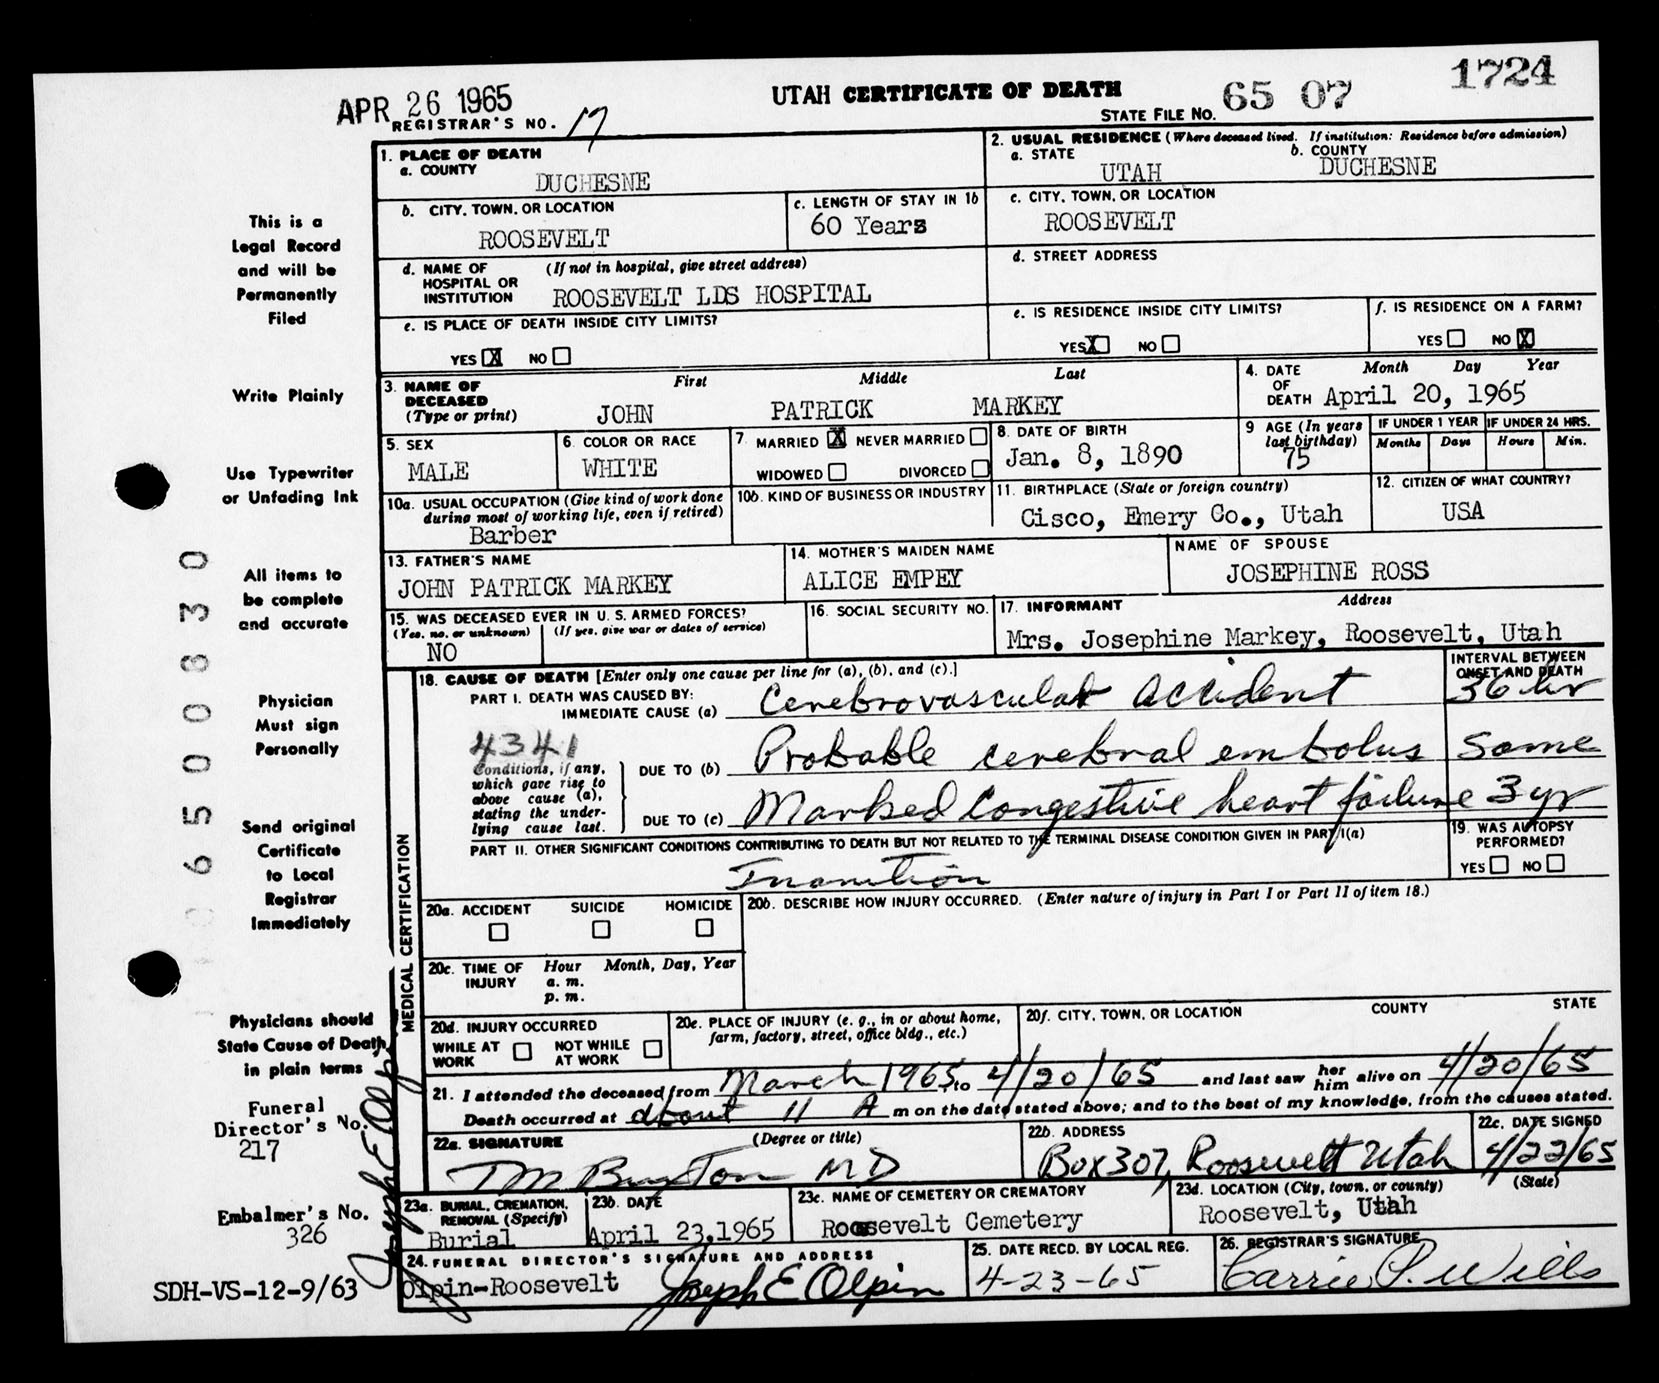 APR 26 1965
UTAH CERTIFICATE OF DEATH
STATE FILE NO. 65 07 1724
REGISTRAR'S NO. 17
This is a
Legal Record
and will be
Permanently
Filed
Write Plainly
Use Typewriter
or Unfading Ink
All items to
be complete
and accurate
Physician
Must sign
Personally
Send original
Certificate
to Local
Registrar
Immediately
Physicians should
State Cause of Death
in plain terms
Funeral
Director's No.
217
Embalmer's No.
326
SDH-VS-12-9/63
650080830
1. PLACE OF DEATH
a. COUNTY
DUCHESNE
2. USUAL RESIDENCE (Where deceased lived. If institution: Residence before admission)
a. STATE UTAH
b. COUNTY DUCHESNE
b. CITY, TOWN, OR LOCATION
ROOSEVELT
c. LENGTH OF STAY IN 1b
60 Years
c. CITY, TOWN, OR LOCATION
ROOSEVELT
d. NAME OF HOSPITAL OR INSTITUTION (If not in hospital, give street address)
ROOSEVELT LDS HOSPITAL
d. STREET ADDRESS
e. IS PLACE OF DEATH INSIDE CITY LIMITS?
YES X NO
e. IS RESIDENCE INSIDE CITY LIMITS?
YES X NO
f. IS RESIDENCE ON A FARM?
YES NO X
3. NAME OF DECEASED (Type or print)
First Middle Last
JOHN PATRICK MARKEY
4. DATE OF DEATH
Month Day Year
April 20, 1965
5. SEX
MALE
6. COLOR OR RACE
WHITE
7. MARRIED X NEVER MARRIED
WIDOWED DIVORCED
8. DATE OF BIRTH
Jan. 8, 1890
9 AGE (In years last birthday)
75
IF UNDER 1 YEAR
Months Days
IF UNDER 24 HRS.
Hours Min.
10a. USUAL OCCUPATION (Give kind of work done during most of working life, even if retired)
Barber
10b. KIND OF BUSINESS OR INDUSTRY
11. BIRTHPLACE (State or foreign country)
Cisco, Emery Co., Utah
12. CITIZEN OF WHAT COUNTRY?
USA
13. FATHER'S NAME
JOHN PATRICK MARKEY
14. MOTHER'S MAIDEN NAME
ALICE EMPEY
NAME OF SPOUSE
JOSEPHINE ROSS
15. WAS DECEASED EVER IN U. S. ARMED FORCES?
(Yes, no, or unknown) (If yes, give war or dates of service)
NO
16. SOCIAL SECURITY NO.
17. INFORMANT Address
Mrs. Josephine Markey, Roosevelt, Utah
MEDICAL CERTIFICATION
18. CAUSE OF DEATH [Enter only one cause per line for (a), (b), and (c).]
INTERVAL BETWEEN ONSET AND DEATH
PART I. DEATH WAS CAUSED BY:
IMMEDIATE CAUSE (a) Cerebrovascular accident 36 hr
4341
Conditions, if any, which gave rise to above cause (a), stating the underlying cause last.
DUE TO (b) Probable cerebral embolus Same
DUE TO (c) Marked Congestive heart failure 3 yr
PART II. OTHER SIGNIFICANT CONDITIONS CONTRIBUTING TO DEATH BUT NOT RELATED TO THE TERMINAL DISEASE CONDITION GIVEN IN PART I(a)
Inanition
19. WAS AUTOPSY PERFORMED?
YES NO
20a. ACCIDENT SUICIDE HOMICIDE
20b. DESCRIBE HOW INJURY OCCURRED. (Enter nature of injury in Part I or Part II of item 18.)
20c. TIME OF INJURY
Hour Month, Day, Year
a. m.
p. m.
20d. INJURY OCCURRED
WHILE AT WORK NOT WHILE AT WORK
20e. PLACE OF INJURY (e. g., in or about home, farm, factory, street, office bldg., etc.)
20f. CITY, TOWN, OR LOCATION COUNTY STATE
21. I attended the deceased from March 1965, to 4/20/65 and last saw her him alive on 4/20/65
Death occurred at about 11 A m on the date stated above; and to the best of my knowledge, from the causes stated.
22a. SIGNATURE (Degree or title)
TM Buxton MD
22b. ADDRESS
Box 307, Roosevelt Utah
22c. DATE SIGNED
4/22/65
23a. BURIAL, CREMATION, REMOVAL (Specify)
Burial
23b. DATE
April 23, 1965
23c. NAME OF CEMETERY OR CREMATORY
Roosevelt Cemetery
23d. LOCATION (City, town, or county) (State)
Roosevelt, Utah
24. FUNERAL DIRECTOR'S SIGNATURE AND ADDRESS
Olpin-Roosevelt Joseph E Olpin
25. DATE RECD. BY LOCAL REG.
4-23-65
26. REGISTRAR'S SIGNATURE
Carrie P. Wills
Joseph E Olpin